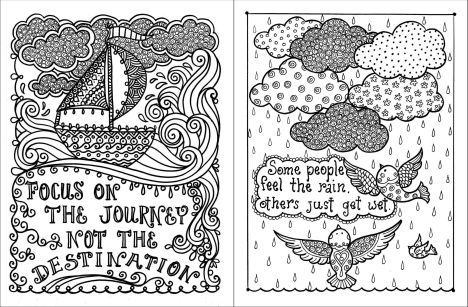 FOCUS ON
THE JOURNEY
NOT THE
DESTINATION
Some people
feel the rain,
others just get wet.